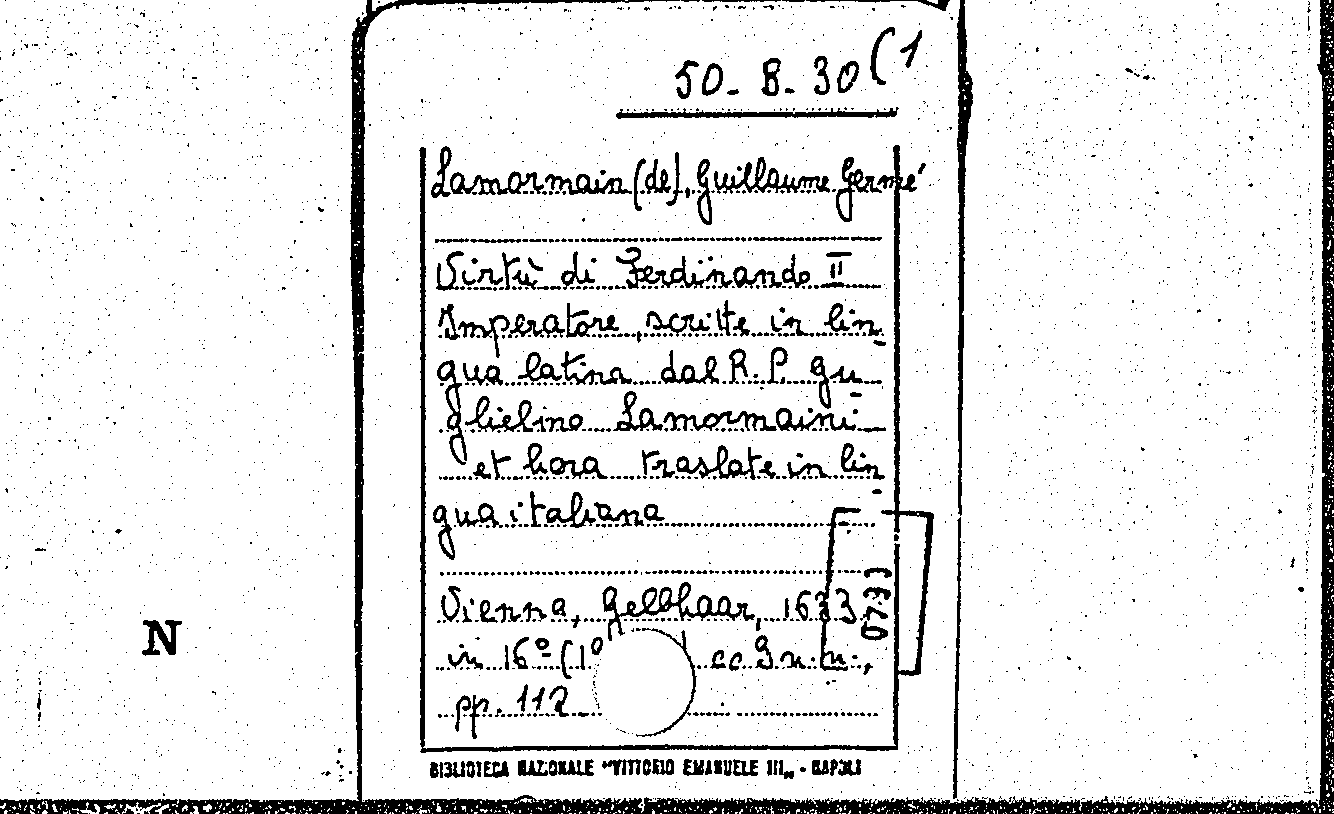 50. B. 30 (1
Lamormain (de), Guillaume Germé
Virtù di Ferdinando II
Imperatore, scritte in lin-
gua latina dal R. P. Gu-
glielmo Lamormaini
et hora traslate in lin-
gua italiana
Vienna, Gelbhaar, 1633
in 16º (10 cc 3 n.n.,
pp. 112
N
BIBLIOTECA NAZIONALE "VITTORIO EMANUELE III„ - NAPOLI